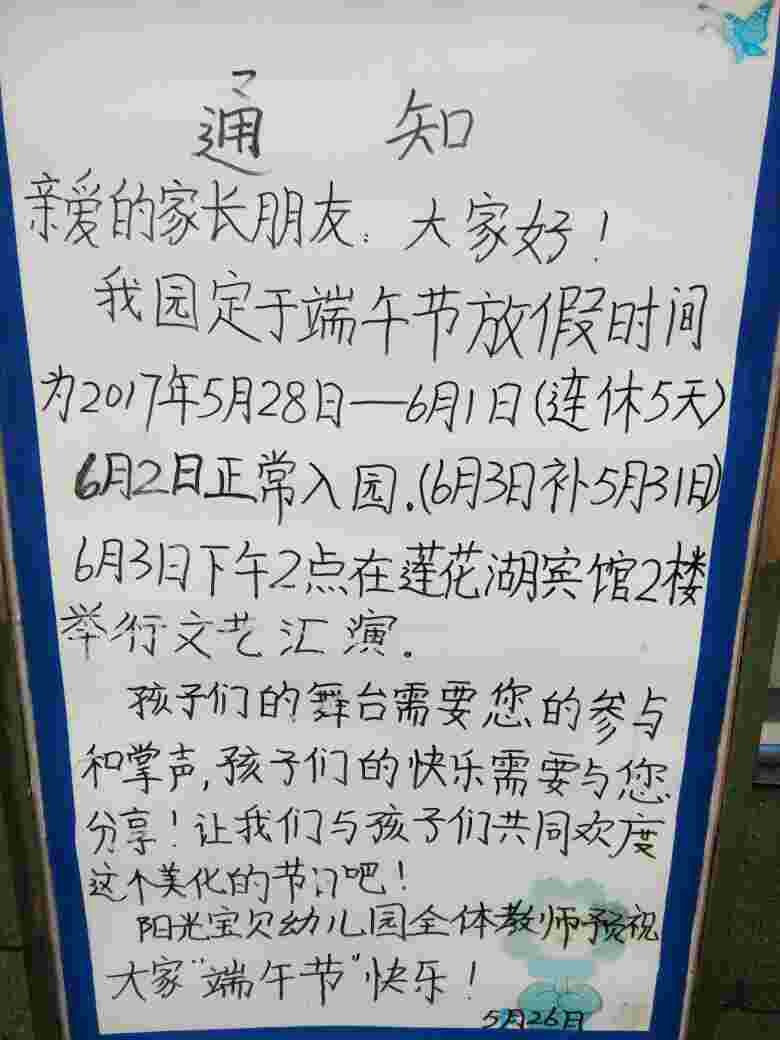 通 知
亲爱的家长朋友：大家好！
我园定于端午节放假时间
为2017年5月28日—6月1日(连休5天)
6月2日正常入园.(6月3日补5月31日)
6月3日下午2点在莲花湖宾馆2楼
举行文艺汇演.
孩子们的舞台需要您的参与
和掌声,孩子们的快乐需要与您
分享！让我们与孩子们共同欢度
这个美化的节日吧！
阳光宝贝幼儿园全体教师预祝
大家"端午节"快乐！
5月26日